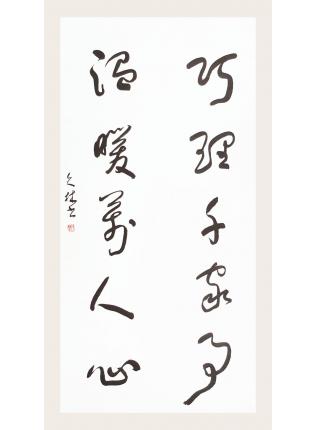 巧理千家事
温暖万人心